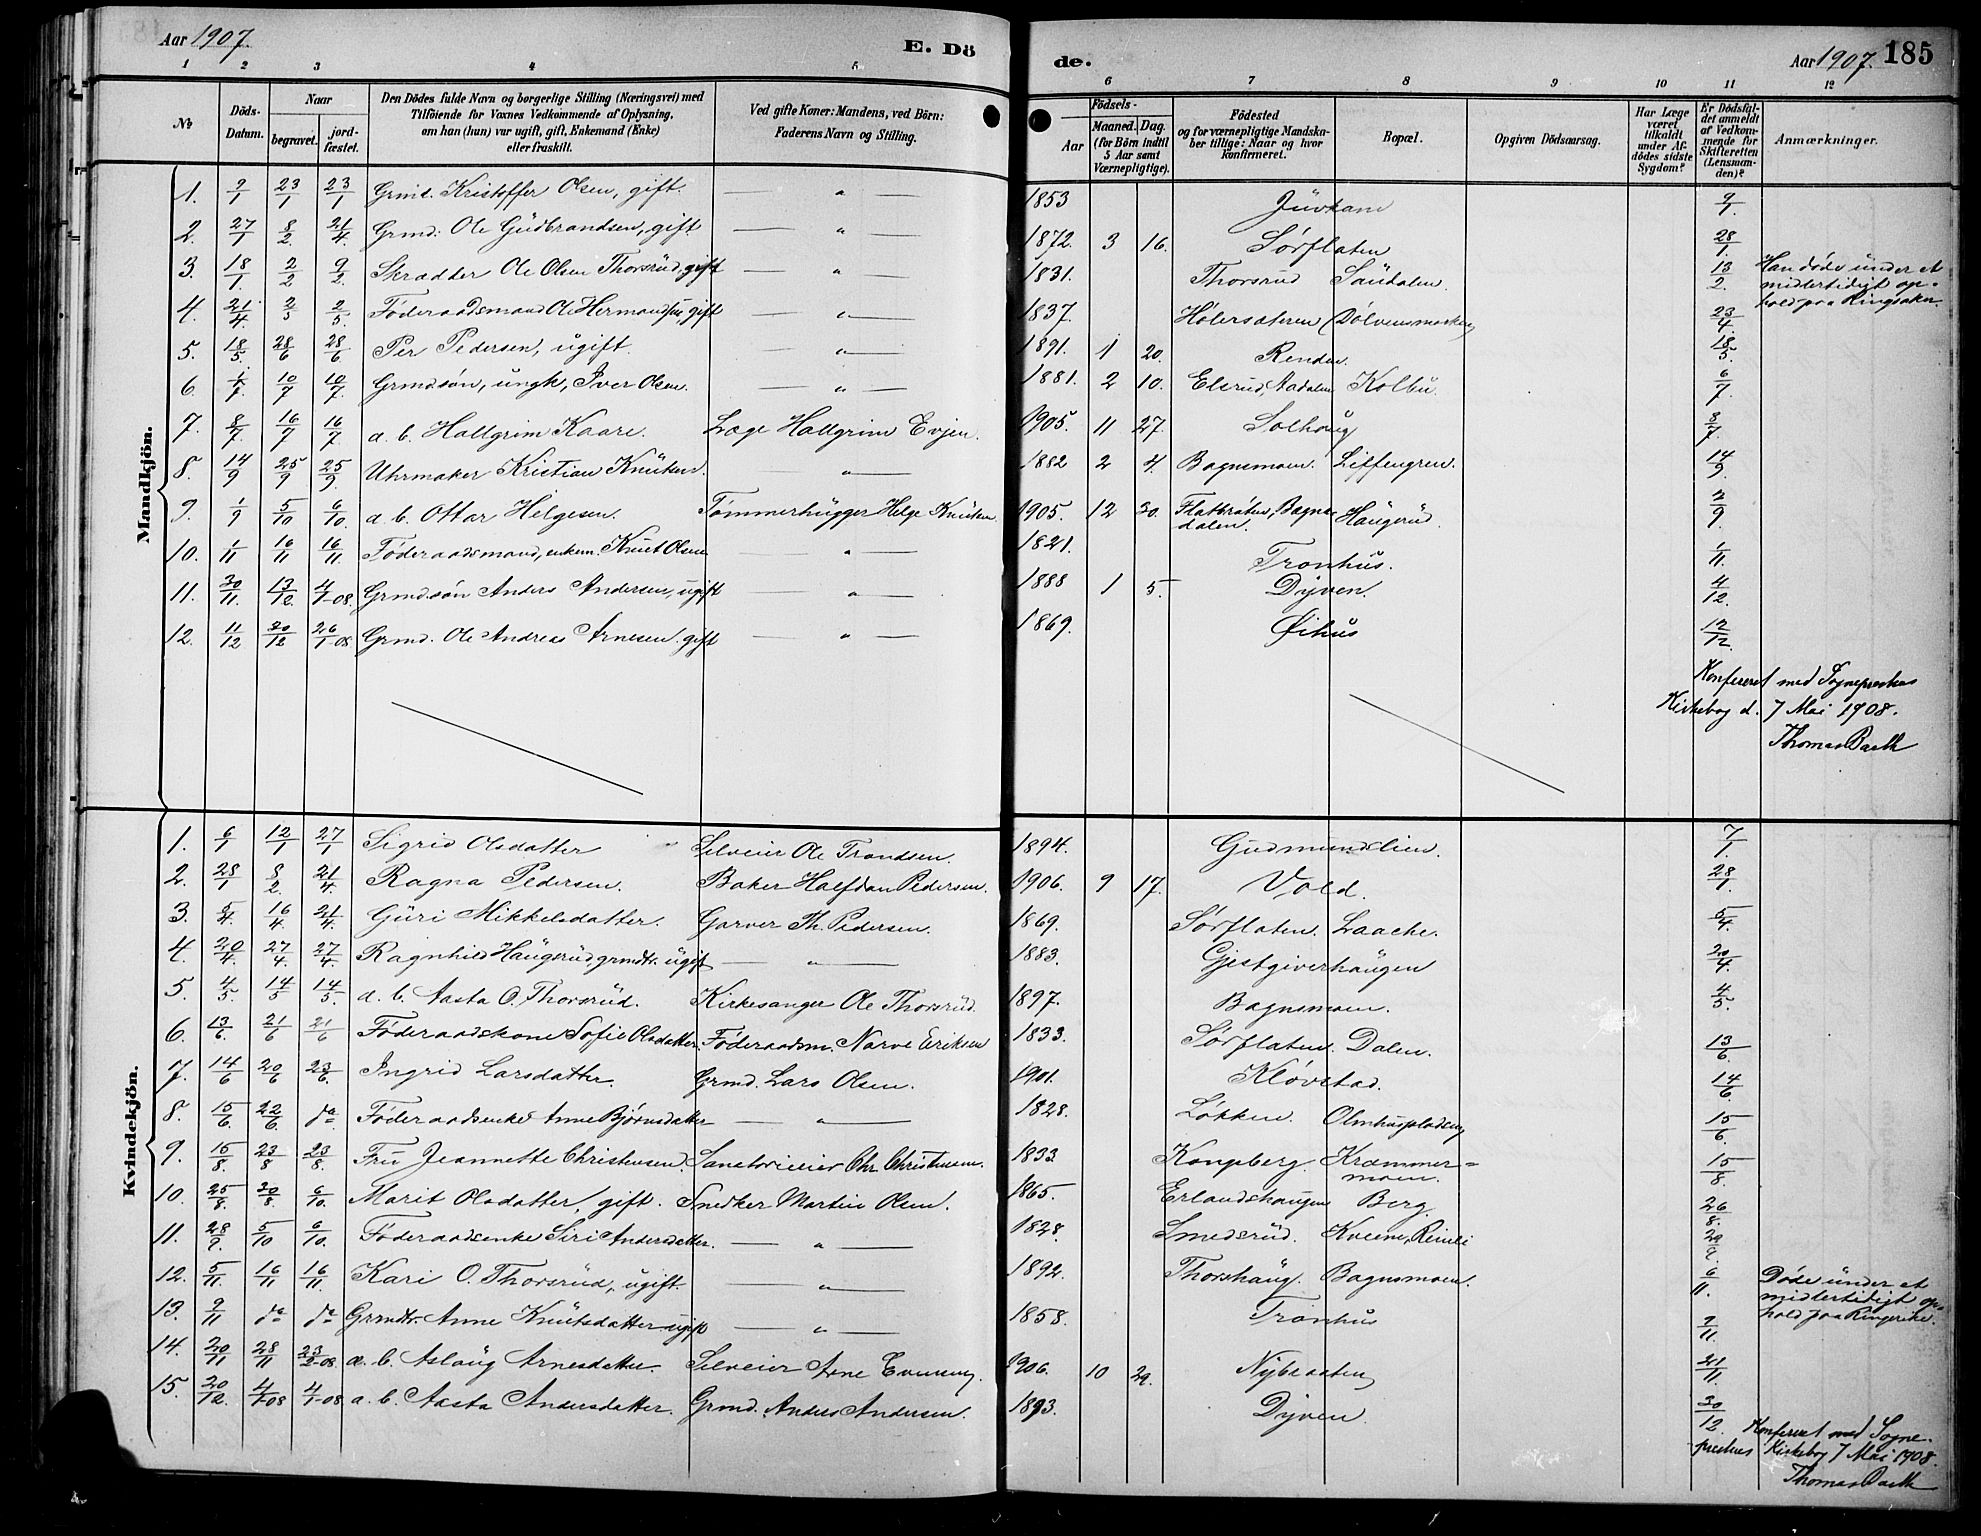 Aar 1907. E. Dö
1 2 3 4 5
No Döds-Datum. Naar begravet. jordfæstet. Den Dödes fulde Navn og borgerlige Stilling (Næringsvei) med Tilföiende for Voxnes Vedkommende af Oplysning, om han (hun) var ugift, gift, Enkemand (Enke) eller fraskilt. Ved gifte Koner: Mandens, ved Börn: Faderens Navn og Stilling.
Mandkjön.
1. 9/1 23/1 23/1 Grmd. Kristoffer Olsen, gift. — " —
2. 27/1 8/2 21/4 Grmd. Ole Gudbrandsen, gift — " —
3. 18/1. 2/2 9/2. Skrædder Ole Olsen Thorsrud, gift — " —
4. 21/4 2/5 2/5. Føderaadsmand Ole Hermandsen, gift — " —
5. 18/5. 28/6 28/6 Per Pedersen, ugift. — " —
6. 10/7 10/7. Grmdsøn, ungk, Iver Olsen. — " —
7. 8/7. 16/7 16/7 d. b. Hallgrim Kaare. Læge Hallgrim Evjen.
8. 14/9 25/9 25/9. Uhrmaker Kristian Knutsen. " —
9. 1/9 5/10 6/10. d. b. Ottar Helgesen. Tømmerhugger Helge Knutsen
10. 1/11 16/11 16/11 Føderaadsmand, enkem. Knut Olsen — " —
11. 30/11. 13/12 4/1-08. Grmdsøn Anders Andersen, ugift — " —
12. 11/12 30/12 26/1-08 Grmd. Ole Andreas Arnesen. gift — " —
Kvindekjön.
1. 6/1 12/1 27/1 Sigrid Olsdatter Selveier Ole Trondsen.
2. 28/1 8/2. 21/4. Ragna Pedersen. Baker Halfdan Pedersen.
3. 5/4. 16/4 21/4 Guri Mikkelsdatter. Garver Th. Pedersen.
4. 20/4. 27/4. 27/4. Ragnhild Haugerud grmdtr. ugift — " —
5. 4/5. 14/5 14/5. d. b. Aasta O. Thorsrud. Kirkesanger Ole Thorsrud.
6. 13/6. 21/6 21/6 Føderaadskone Sofie Olsdatter. Føderaadsm. Narve Eriksen
7. 14/6 20/6 23/6. Ingrid Larsdatter. Grmd. Lars Olsen.
8. 15/6. 22/6. do Føderaadsenke Anne Bjørnsdatter — " —
9. 15/8. 23/8 23/8. Fru Jeannette Christensen. Sanatorieeier Chr. Christensen.
10. 25/8. 30/8. 6/10. Marit Olsdatter, gift. Snedker Martin Olsen.
11. 28/9. 5/10 6/10. Føderaadsenke Siri Andersdatter. — " —
12. 5/11. 16/11 16/11. Kari O. Thorsrud, ugift. — " —
13. 9/11 do do Grmdtr. Anne Knutsdatter ugift — " —
14. 20/11 28/11 23/2-08. d. b. Aslaug Arnesdatter. Selveier Arne Evensen.
15. 20/12. 4/1-08 4/1-08 d. b. Aasta Andersdatter. Grmd. Anders Andersen.
de. Aar 1907. 185
6 7 8 9 10 11 12
Födsels- Aar Maaned. Dag. (for Børn indtil 5 Aar samt Værnepligtige). Födested og for værnepligtige Mandskaber tillige: Naar og hvor konfirmeret. Bopæl. Opgiven Dödsaarsag. Har Læge været tilkaldt under Afdödes sidste Sygdom? Er Dödsfaldet anmeldt af Vedkommende for Skifteretten (Lensmanden)? Anmærkninger.
1853 Juvkam 9/1.
1872. 3 16. Sørflaten 28/1.
1831. Thorsrud Saudalen. 13/2. Han døde under et midlertidigt ophold paa Ringsaker.
1837. Hølersæteren (Dølvensmarken) 23/4.
1891. 1 20. Renden. 18/5.
1881. 2 10. Elsrud, Aadalen Kolbu. 6/7.
1905. 11 27. Solhaug 8/7.
1882 2 4. Bagnsmoen. Liffengren. 14/9.
1905. 12 30. Flatbråten, Bagnsdalen. Haugerud. 2/9.
1821. Tronhus. 1/11.
1888 1 5. Dyven. 4/12.
1869. Øihus 12/12.
Konfereret med Sogneprestens
Kirkebog d. 7 Mai 1908.
Thomas Barth
1894. Gudmundslien. 7/1.
1906. 9 17. Vold. 28/1.
1869. Sørflaten. Laache. 5/4.
1883. Gjestgiverhaugen 20/4.
1897. Bagnsmoen. 4/5.
1833. Sørflaten. Dalen. 13/6.
1901. Kløvstad. 14/6.
1828. Løkken. Olmhuspladsen 15/6.
1833 Kongsberg. Krammermoen. 15/8.
1865. Erlandshaugen Berg. 26/8.
1828. Smedsrud. Kveine, Reinli 29/9.
1892. Thorshaug. Bagnsmoen. 6/11. Døde under et midlertidigt ophold paa Ringerike.
1858. Tronhus 9/11.
1906. 10 29. Nybraaten 21/11.
1893. Dyven. 30/12.
Konfereret med Sogne-
prestens Kirkebog 7 Mai 1908.
Thomas Barth